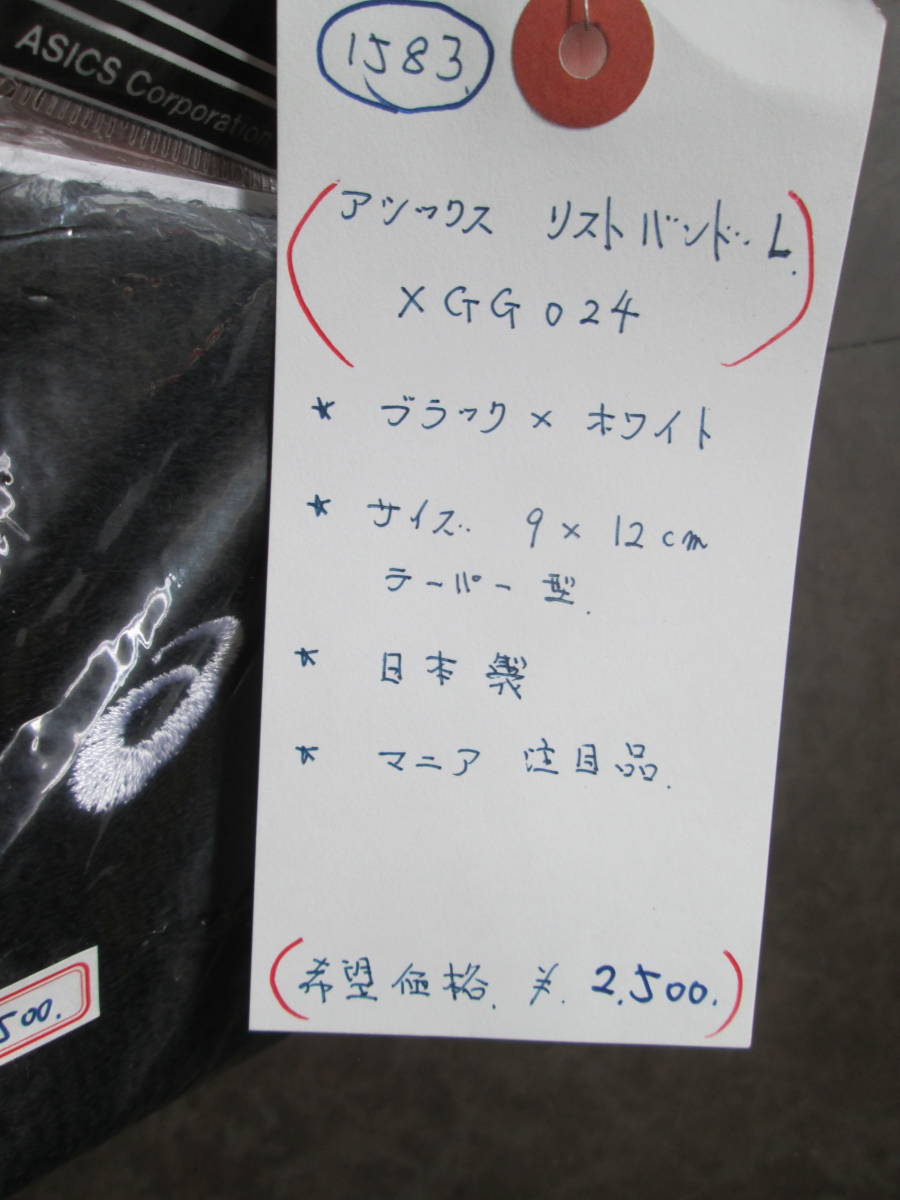 ASICS Corporation
1583
アシックス リストバンド L
XGG024
* ブラック × ホワイト
* サイズ 9 × 12cm
テーパー型.
* 日本製
* マニア 注目品.
希望価格. ¥. 2,500.
500.